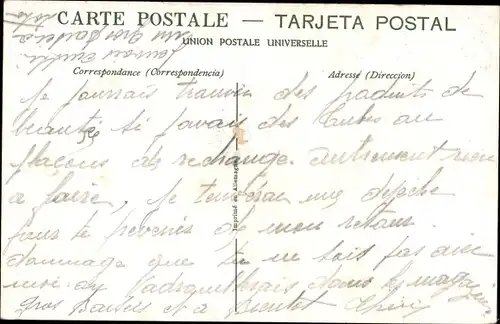 CARTE POSTALE — TARJETA POSTAL
UNION POSTALE UNIVERSELLE
Correspondance (Correspondencia)
Adresse (Direccion)
Je pourrais trouver des produits de
beauté si j'avais des tubes ou
flacons de rechange autrement rien
a faire, Je t'enverrai une dépeche
pour te prevenir de mon retour
dommage que tu ne sois pas avec
moi dans le magazin
Gros Baisers et a Bientot Cheri
Imprimé en Allemagne